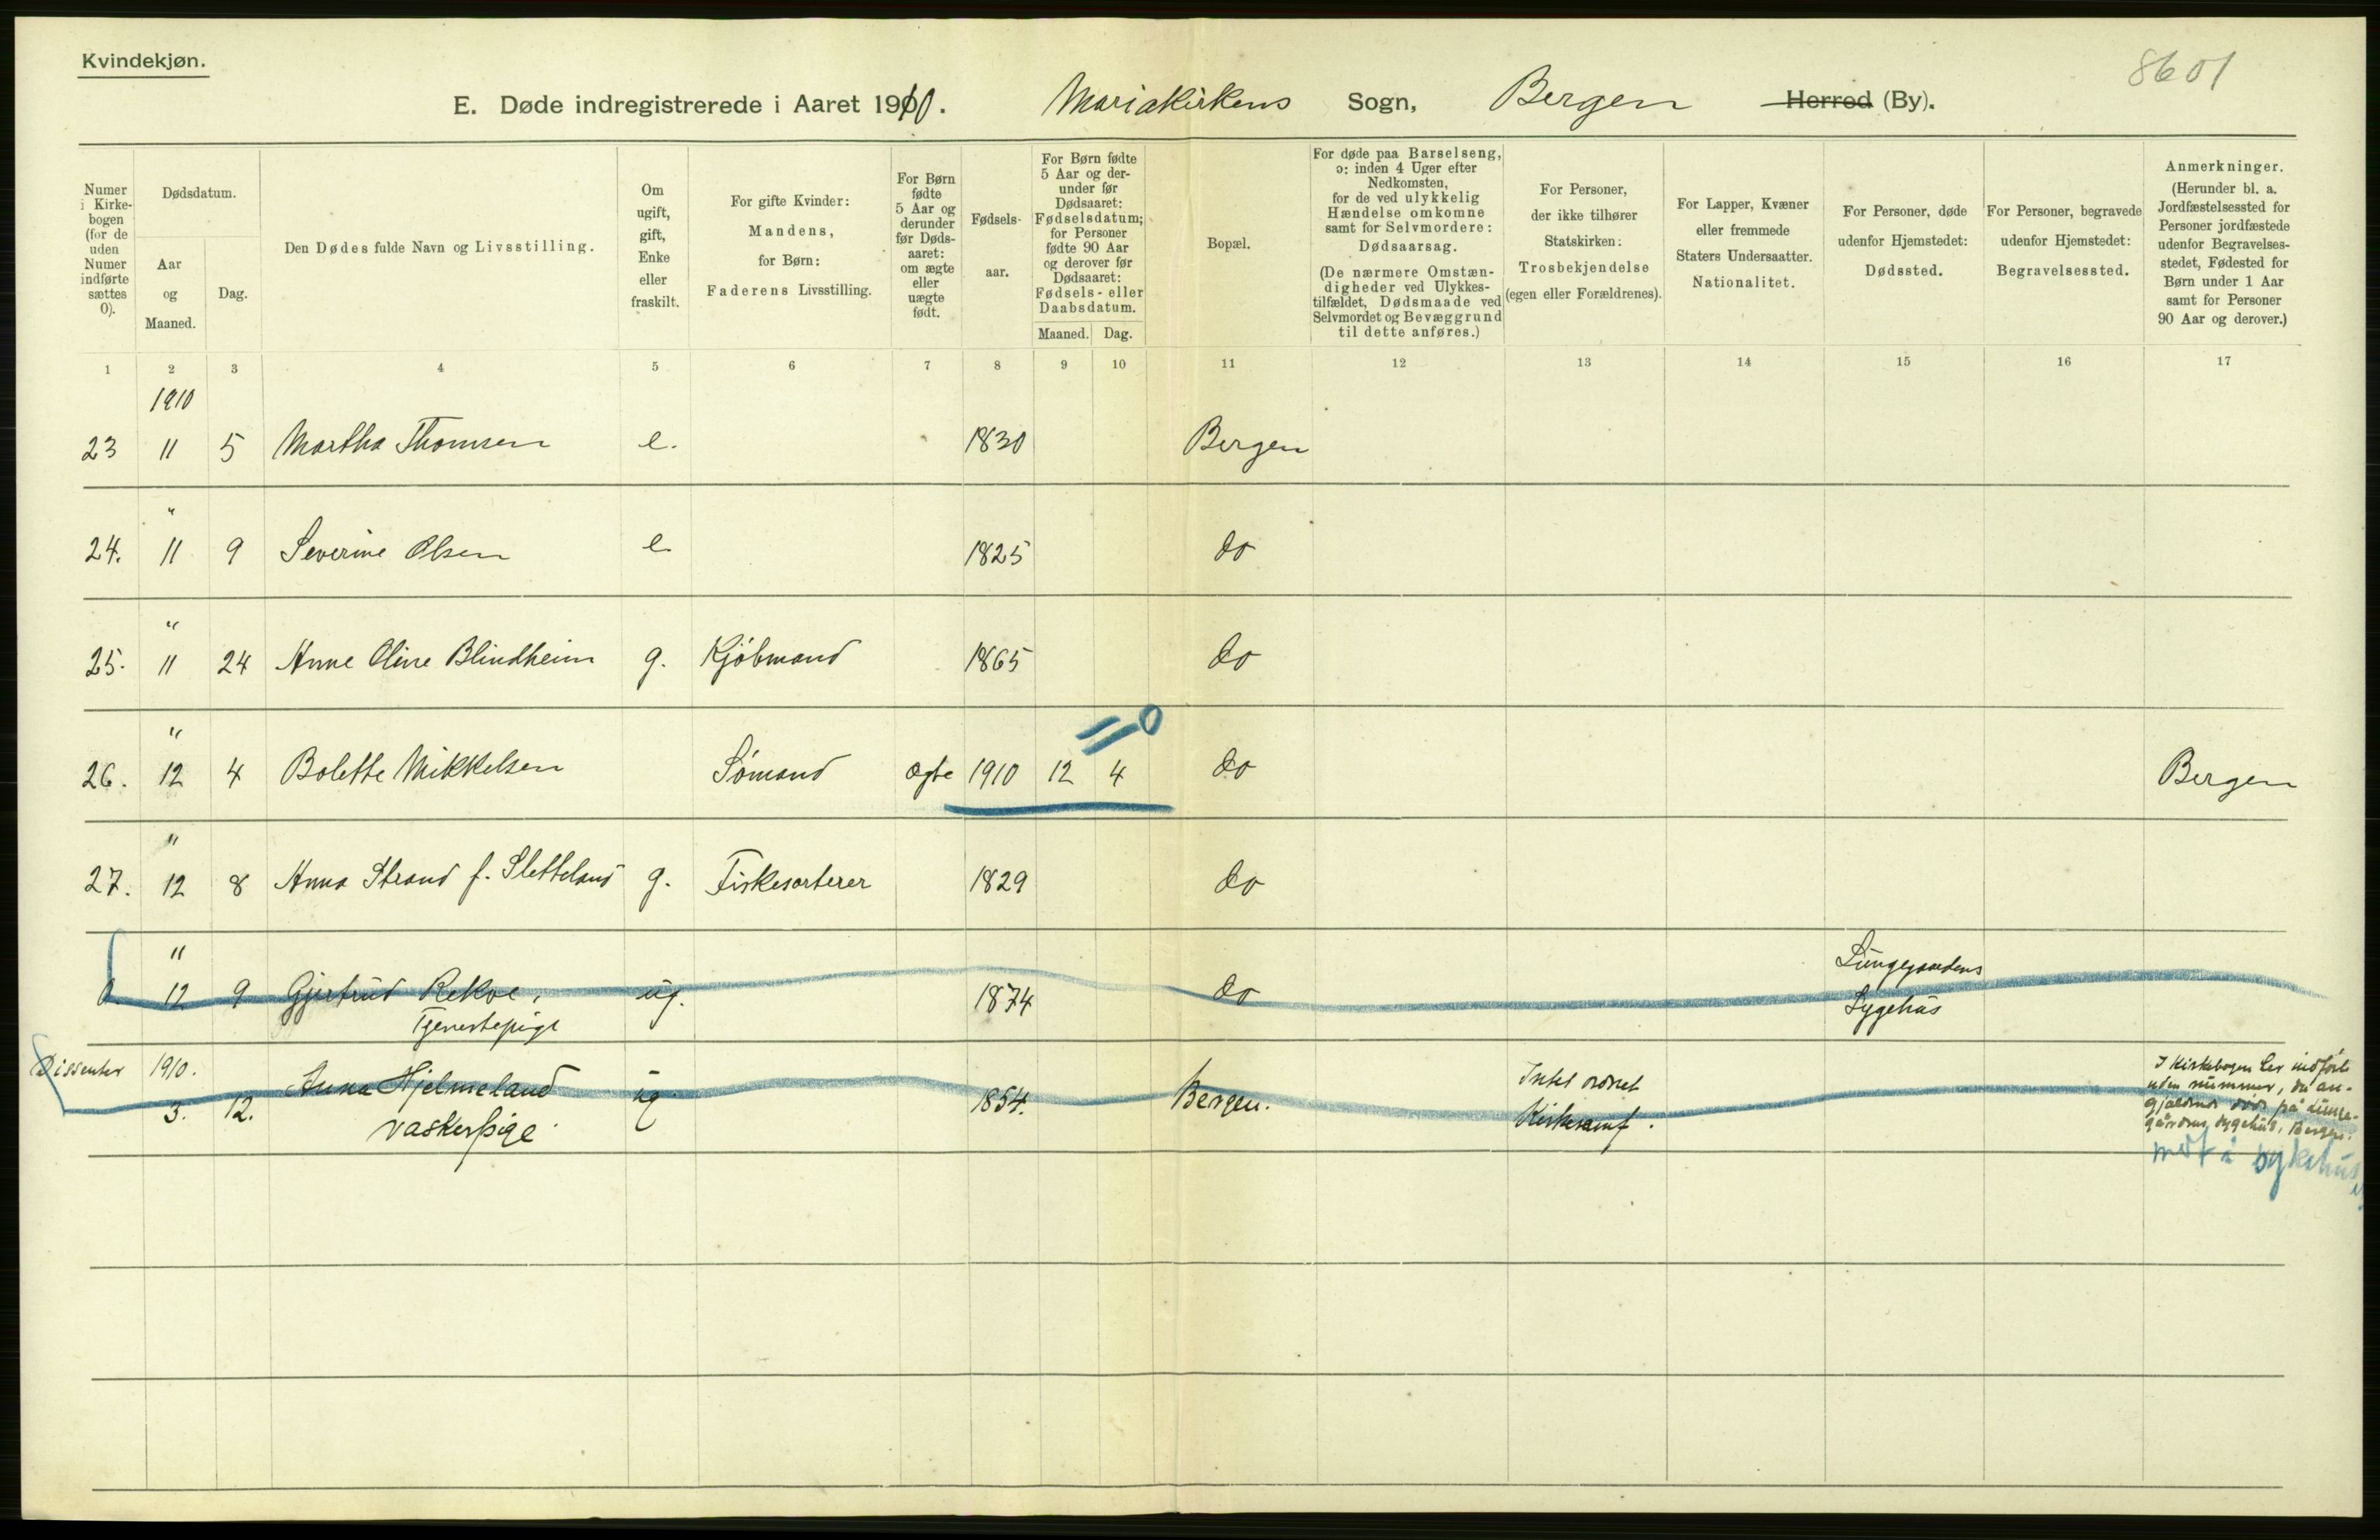 Kvindekjøn.
8601
E. Døde indregistrerede i Aaret 1910. Mariakirkens Sogn, Bergen Herred (By).
Numer i Kirkebogen (for de uden Numer indførte sættes 0).
Dødsdatum.
Aar og Maaned.
Dag.
Den Dødes fulde Navn og Livsstilling.
Om ugift, gift, Enke eller fraskilt.
For gifte Kvinder: Mandens, for Børn: Faderens Livsstilling.
For Børn fødte 5 Aar og derunder før Dødsaaret: om ægte eller uægte født.
Fødselsaar.
For Børn fødte 5 Aar og derunder før Dødsaaret: Fødselsdatum; for Personer fødte 90 Aar og derover før Dødsaaret: Fødsels- eller Daabsdatum.
Maaned. Dag.
Bopæl.
For døde paa Barselseng, ɔ: inden 4 Uger efter Nedkomsten, for de ved ulykkelig Hændelse omkomne samt for Selvmordere: Dødsaarsag. (De nærmere Omstændigheder ved Ulykkestilfældet, Dødsmaade ved Selvmordet og Bevæggrund til dette anføres.)
For Personer, der ikke tilhører Statskirken: Trosbekjendelse (egen eller Forældrenes).
For Lapper, Kvæner eller fremmede Staters Undersaatter. Nationalitet.
For Personer, døde udenfor Hjemstedet: Dødssted.
For Personer, begravede udenfor Hjemstedet: Begravelsessted.
Anmerkninger. (Herunder bl. a. Jordfæstelsessted for Personer jordfæstede udenfor Begravelsesstedet, Fødested for Børn under 1 Aar samt for Personer 90 Aar og derover.)
1 2 3 4 5 6 7 8 9 10 11 12 13 14 15 16 17
1910
23 11 5 Martha Thomsen e. 1830 Bergen
"
24. 11 9 Severine Olsen e. 1825 do
"
25. 11 24 Anne Oline Blindheim g. Kjøbmand 1865 do
" 0
26. 12 4 Bolette Mikkelsen Sømand ægte 1910 12 4 do Bergen
"
27. 12 8 Anna Strand f. Sletteland g. Fiskesorterer 1829 do
" Lungegaardens
0. 12 9 Gjertrud Rekve, ug. 1874 do Sygehus
Tjenestepige
Dissenter 1910.
3. 12. Anna Hjelmeland ug 1854. Bergen. Intet ordnet Kirkesamf.
vaskerpige
I Kirkebogen her indført
uden nummer, da an-
gjældende døde på Lunge-
gårdens sygehus, Bergen.